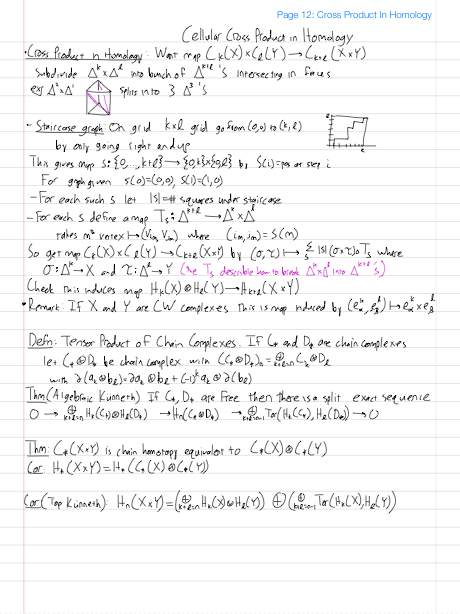 Page 12: Cross Product In Homology
Cellular Cross Product in Homology
• Cross Product in Homology: Want map C_k(X) × C_ℓ(Y) → C_{k+ℓ}(X×Y)
Subdivide Δ^k×Δ^ℓ into bunch of Δ^{k+ℓ}'s intersecting in faces
ex) Δ²×Δ¹ splits into 3 Δ³'s
- Staircase graph On grid k×ℓ grid go from (0,0) to (k,ℓ)
by only going right and up
This gives map s: {0,...,k+ℓ} → {0,k}×{0,ℓ} by S(i)=pos at step i
For graph given s(0)=(0,0), s(1)=(1,0)
- For each such s let |s|=# squares under staircase
- For each s define a map T_s: Δ^{k+ℓ} → Δ^k×Δ^ℓ
takes m^th vertex ↦ (V_{i_m}, V_{j_m}) where (i_m, j_m) = S(m)
So get map C_k(X)×C_ℓ(Y) → C_{k+ℓ}(X×Y) by (σ,τ) ↦ Σ_s |s|(σ×τ)∘T_s where
σ: Δ^k → X and τ: Δ^ℓ → Y (The T_s describe how to break Δ^k×Δ^ℓ into Δ^{k+ℓ}'s)
Check this induces map H_k(X)⊗H_ℓ(Y) → H_{k+ℓ}(X×Y)
• Remark: If X and Y are CW complexes this is map induced by (e_α^k, e_β^ℓ) ↦ e_α^k × e_β^ℓ
Defn: Tensor Product of Chain Complexes. If C_* and D_* are chain complexes
let C_*⊗D_* be chain complex with (C_*⊗D_*)_n = ⊕_{k+ℓ=n} C_k⊗D_ℓ
with ∂(a_k⊗b_ℓ)=∂a_k⊗b_ℓ+(-1)^k a_k⊗∂(b_ℓ)
Thm (Algebraic Kunneth) If C_*, D_* are free then there is a split exact sequence
0 → ⊕_{k+ℓ=n} H_k(C_*)⊗H_ℓ(D_*) → H_n(C_*⊗D_*) → ⊕_{k+ℓ=n-1} Tor(H_k(C_*), H_ℓ(D_*)) → 0
Thm: C_*(X×Y) is chain homotopy equivalent to C_*(X)⊗C_*(Y)
Cor: H_*(X×Y)=H_*(C_*(X)⊗C_*(Y))
Cor (Top Kunneth): H_n(X×Y)=(⊕_{k+ℓ=n} H_k(X)⊗H_ℓ(Y)) ⊕ (⊕_{k+ℓ=n-1} Tor(H_k(X),H_ℓ(Y))